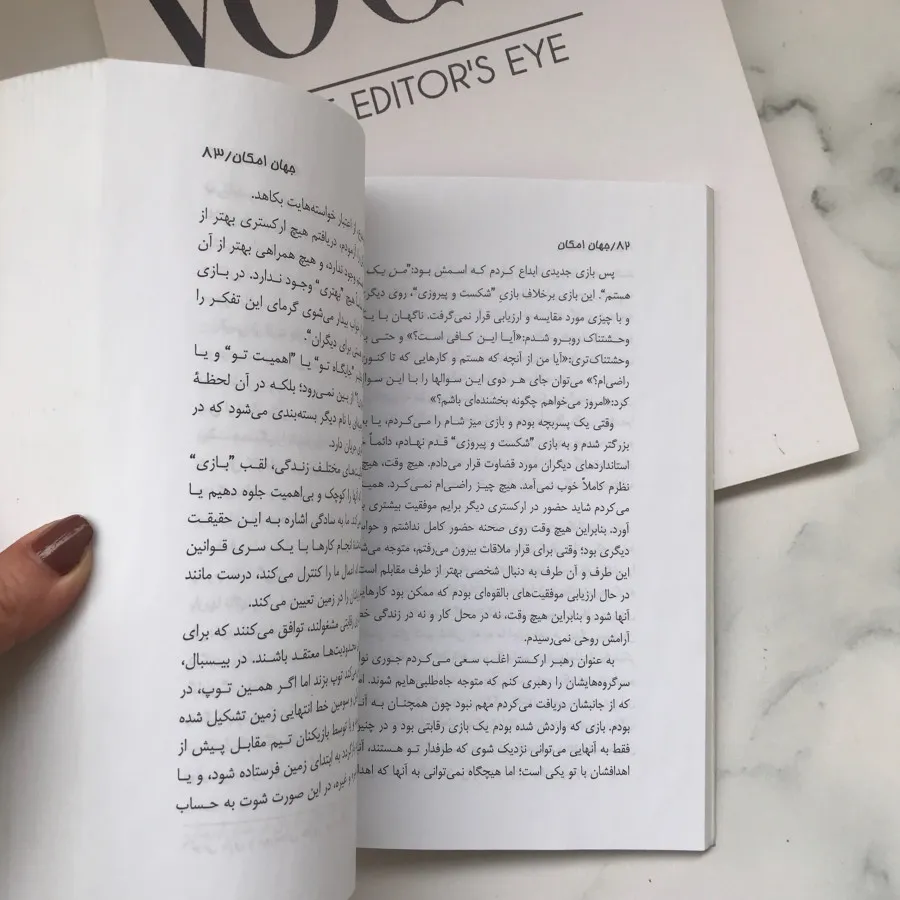 VOGUE
EDITOR'S EYE
۸۲/جهان امکان
پس بازی جدیدی ابداع کردم که اسمش بود:"من یک
هستم". این بازی برخلاف بازی "شکست و پیروزی"، روی دیگر
و با چیزی مورد مقایسه و ارزیابی قرار نمی‌گرفت. ناگهان با یک
وحشتناک روبرو شدم:«آیا این کافی است؟» و حتی
وحشتناک‌تری:«آیا من از آنچه که هستم و کارهایی که تا کنون
راضی‌ام؟» می‌توان جای هر دوی این سوالها را با این سوال
کرد:«امروز می‌خواهم چگونه بخشنده‌ای باشم؟»
وقتی یک پسربچه بودم و بازی میز شام را می‌کردم، یا
بزرگتر شدم و به بازی "شکست و پیروزی" قدم نهادم، دائماً
استانداردهای دیگران مورد قضاوت قرار می‌دادم. هیچ وقت، هیچ
نظرم کاملاً خوب نمی‌آمد. هیچ چیز راضی‌ام نمی‌کرد.
می‌کردم شاید حضور در ارکستری دیگر برایم موفقیت بیشتری
آورد، بنابراین هیچ وقت روی صحنه حضور کامل نداشتم و
دیگری بود؛ وقتی برای قرار ملاقات بیرون می‌رفتم، متوجه
این طرف و آن طرف به دنبال شخصی بهتر از طرف مقابلم
در حال ارزیابی موفقیت‌های بالقوه‌ای بودم که ممکن بود
آنها شود و بنابراین هیچ وقت، نه در محل کار و نه در زندگی
آرامش روحی نمی‌رسیدم.
به عنوان رهبر ارکستر اغلب سعی می‌کردم جوری
سرگروه‌هایشان را رهبری کنم که متوجه جاه‌طلبی‌هایم شوند.
که از جانبشان دریافت می‌کردم مهم نبود چون همچنان به
بودم. بازی که واردش شده بودم یک بازی رقابتی بود و در
فقط به آنهایی می‌توانی نزدیک شوی که طرفدار تو هستند،
اهدافشان با تو یکی است؛ اما هیچگاه نمی‌توانی به آنها که
جهان امکان/۸۳
از اعتبار خواسته‌هایت بکاهد.
دریافتم هیچ ارکستری بهتر از
وجود ندارد، و هیچ همراهی بهتر از آن
هیچ "بهتری" وجود ندارد. در بازی
بیدار می‌شوی گرمای این تفکر را
برای دیگران".
"جایگاه تو" یا "اهمیت تو" و یا
از بین نمی‌رود؛ بلکه در آن لحظهٔ
با نام دیگر بسته‌بندی می‌شود که در
جریان دارد.
مختلف زندگی، لقب "بازی"
را کوچک و بی‌اهمیت جلوه دهیم یا
ما به سادگی اشاره به این حقیقت
انجام کارها با یک سری قوانین
اعمال ما را کنترل می‌کند، درست مانند
را در زمین تعیین می‌کند.
رقابتی مشغولند، توافق می‌کنند که برای
محدودیت‌ها معتقد باشند. در بیسبال،
توپ بزند اما اگر همین توپ، در
و سومین خط انتهایی زمین تشکیل شده
توسط بازیکنان تیم مقابل پیش از
به ابتدای زمین فرستاده شود، و یا
و غیره، در این صورت شوت به حساب